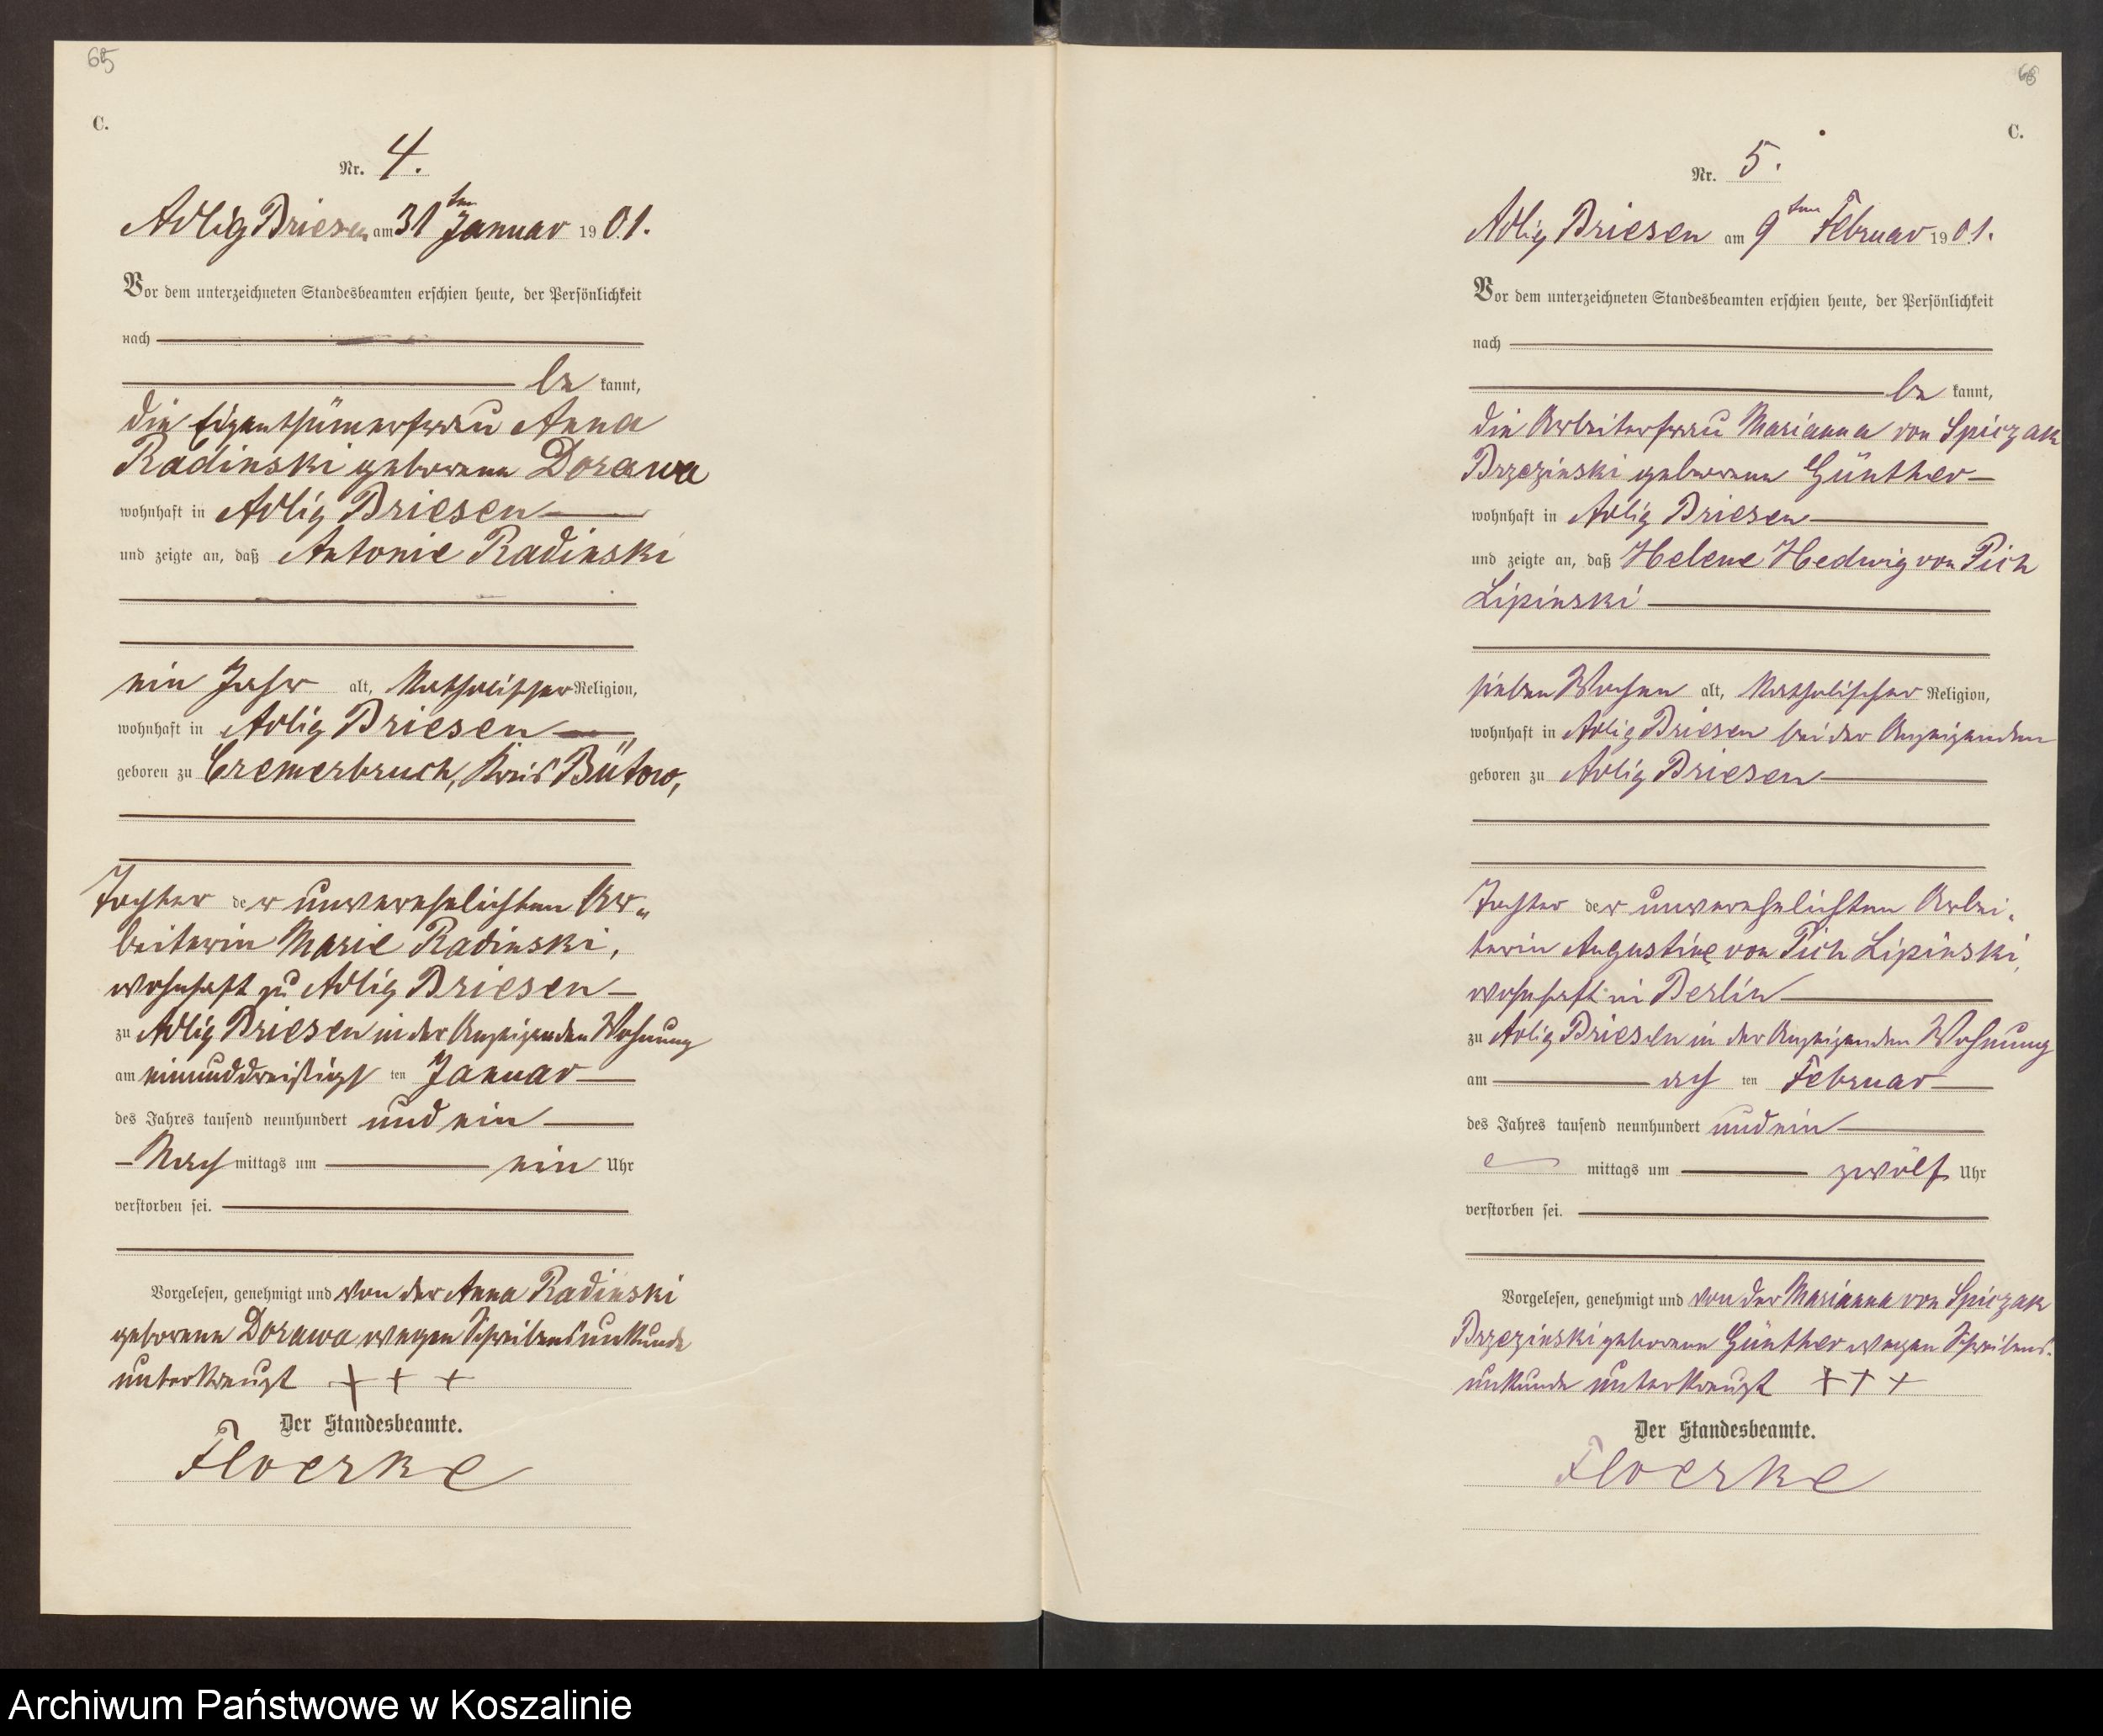 65
C.
Nr. 4.
Adlig Briesen am 31ten Januar 1901.
Vor dem unterzeichneten Standesbeamten erschien heute, der Persönlichkeit
nach
be kannt,
die Eigenthümerfrau Anna
Radinski geborene Dorawa
wohnhaft in Adlig Briesen
und zeigte an, daß Antonie Radinski
ein Jahr alt, katholischer Religion,
wohnhaft in Adlig Briesen,
geboren zu Cremerbruch, Kreis Bütow,
Tochter der unverehelichten Ar„
beiterin Marie Radinski,
wohnhaft zu Adlig Briesen
zu Adlig Briesen in der Anzeigenden Wohnung
am einunddreißigst ten Januar
des Jahres tausend neunhundert und ein
Nach mittags um ein Uhr
verstorben sei.
Vorgelesen, genehmigt und von der Anna Radinski
geborene Dorawa wegen Schreibensunkunde
unterkreuzt + + +
Der Standesbeamte.
Floerke
C.
Nr. 5.
Adlig Briesen am 9ten Februar 1901.
Vor dem unterzeichneten Standesbeamten erschien heute, der Persönlichkeit
nach
be kannt,
die Arbeiterfrau Marianna von Spiczak
Brzezinski geborene Günther
wohnhaft in Adlig Briesen
und zeigte an, daß Helene Hedwig von Pich
Lipinski
sieben Wochen alt, katholischer Religion,
wohnhaft in Adlig Briesen bei der Anzeigenden
geboren zu Adlig Briesen
Tochter der unverehelichten Arbei„
terin Augustine von Pich Lipinski,
wohnhaft in Berlin
zu Adlig Briesen in der Anzeigenden Wohnung
am ach ten Februar
des Jahres tausend neunhundert und ein
mittags um zwölf Uhr
verstorben sei.
Vorgelesen, genehmigt und von der Marianna von Spiczak
Brzezinski geborene Günther wegen Schreibens„
unkunde unterkreuzt + + +
Der Standesbeamte.
Floerke
Archiwum Państwowe w Koszalinie